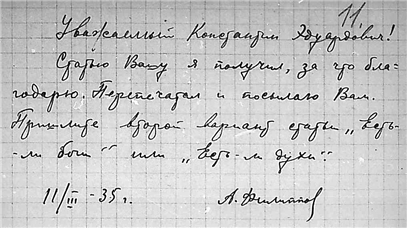 11.
Уважаемый Константин Эдуардович!
Статью Вашу я получил, за что бла-
годарю. Перепечатал и посылаю Вам.
Пришлите второй вариант статьи „Есть-
-ли боги“ или „Есть-ли духи“.
11/III -35 г. А. Филиппов